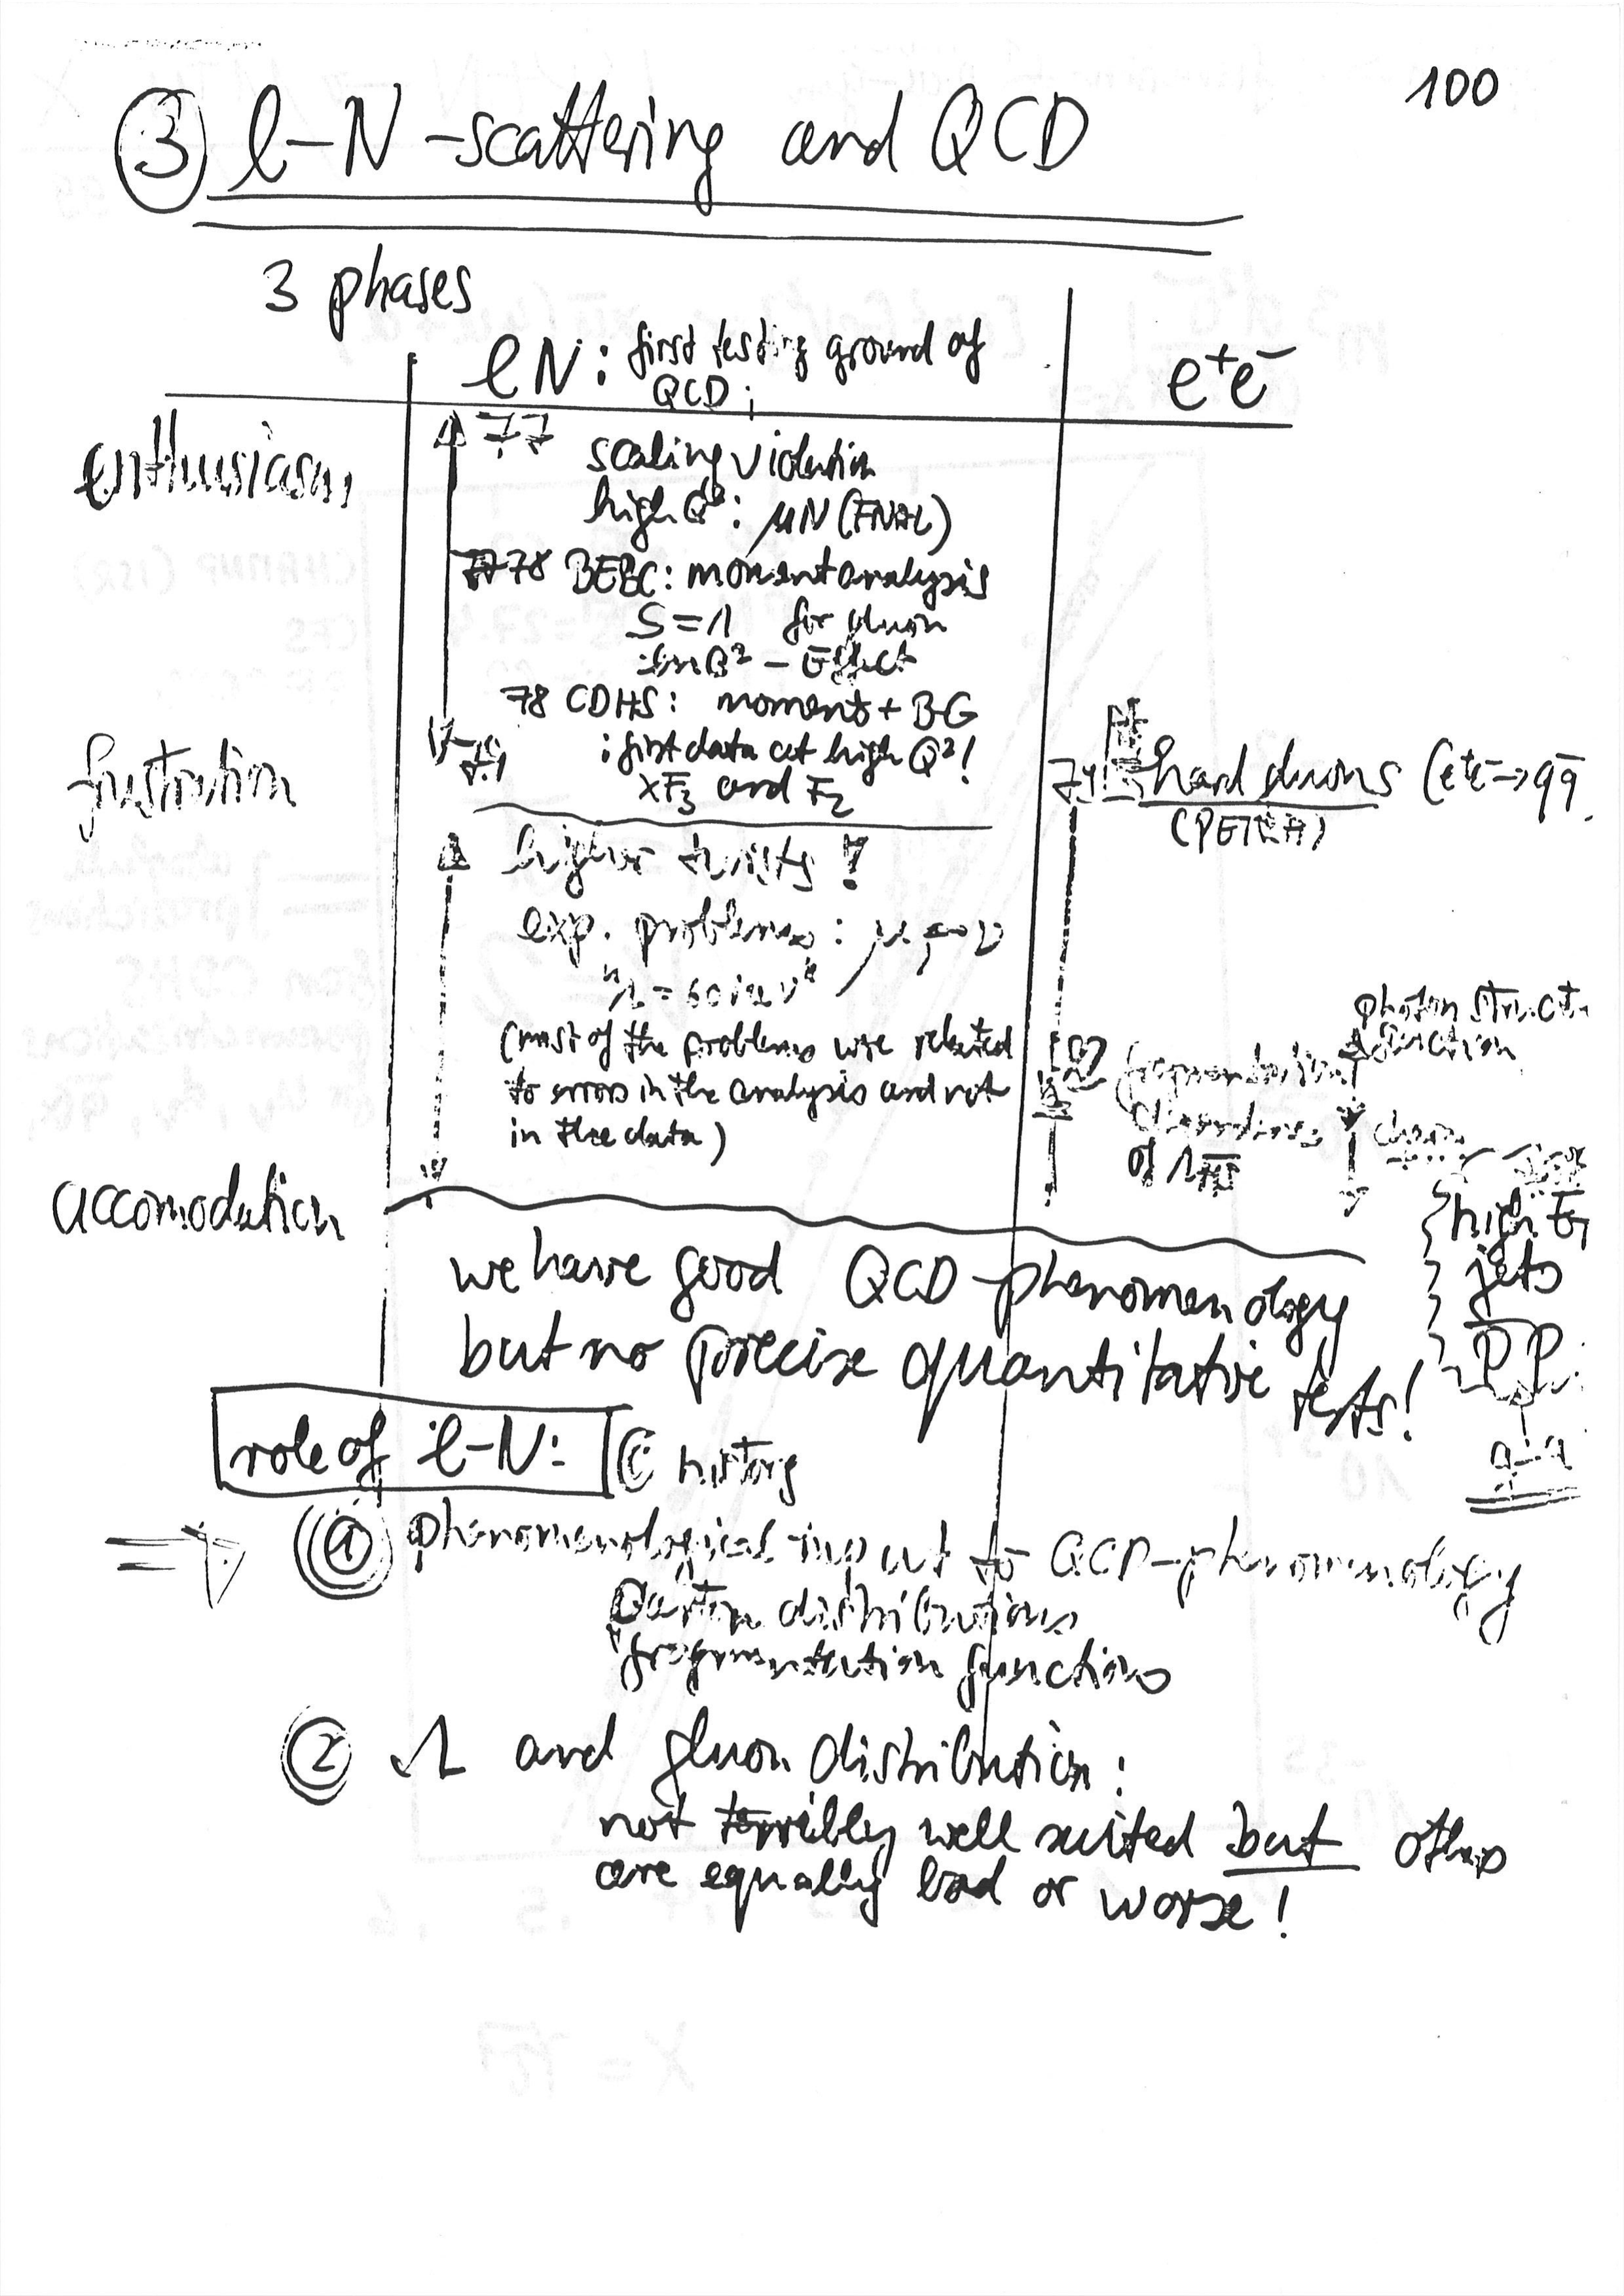 100
③ l-N-scattering and QCD
3 phases
lN: first testing ground of
QCD;
e⁺e⁻
enthusiasm,
77 scaling violation
high Q²: μN (FNAL)
78 BEBC: moment analysis
S=1 for gluon
Q² - Effect
78 CDHS: moments + BG
: first data at high Q²!
xF₃ and F₂
frustration
79
hard gluons (e⁺e⁻→qq̄
(PETRA)
higher twists !
exp. problems: μ ↔ ν
(most of the problems were related
to errors in the analysis and not
in the data)
photon struct.
function
fragmentation
dependence
of Λ
accomodation
high E_T
jets
we have good QCD-phenomenology
but no precise quantitative tests!
role of l-N:
history
⇒ ① phenomenological input to QCD-phenomenology
parton distributions
fragmentation functions
② Λ and gluon distribution:
not terribly well suited but others
are equally bad or worse!